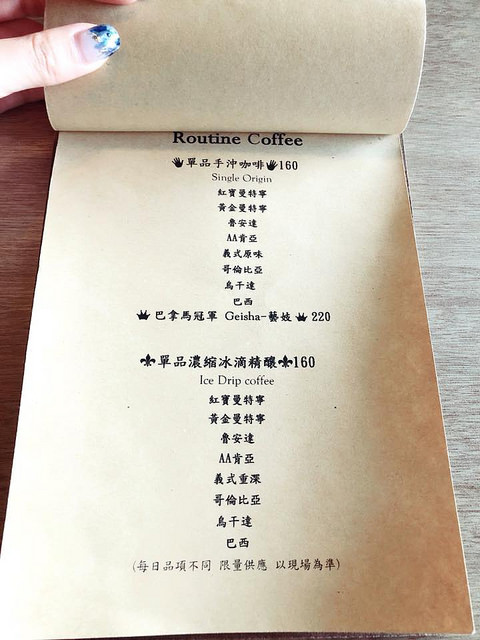 Routine Coffee
單品手沖咖啡160
Single Origin
紅寶曼特寧
黃金曼特寧
魯安達
AA肯亞
義式原味
哥倫比亞
烏干達
巴西
巴拿馬冠軍 Geisha-藝妓 220
單品濃縮冰滴精釀160
Ice Drip coffee
紅寶曼特寧
黃金曼特寧
魯安達
AA肯亞
義式重深
哥倫比亞
烏干達
巴西
(每日品項不同 限量供應 以現場為準)